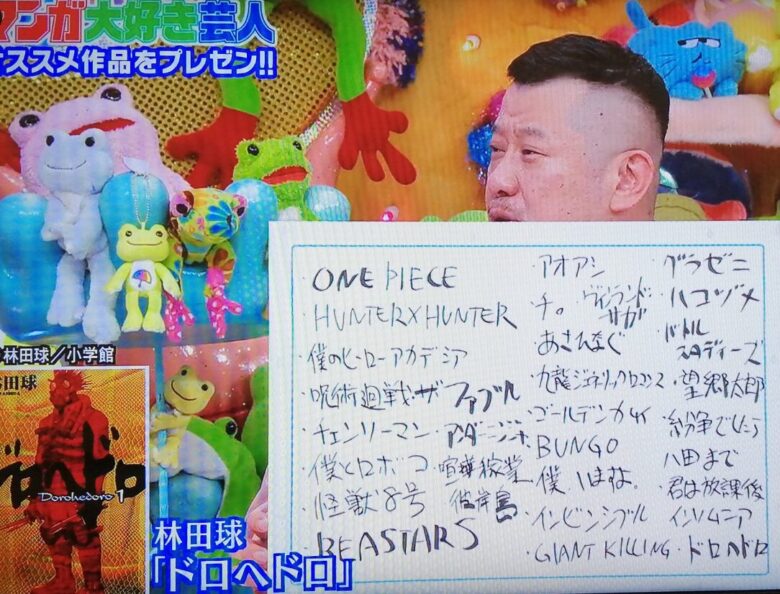 マンガ大好き芸人
オススメ作品をプレゼン!!
林田球/小学館
林田球
ドロヘドロ
Dorohedoro 1
林田球
「ドロヘドロ」
ONE PIECE
HUNTER×HUNTER
僕のヒーローアカデミア
呪術廻戦・ザ ファブル
チェンソーマン・
僕とロボコ・喧嘩稼業
怪獣8号 彼岸島
BEASTARS
・アオアシ
・チ。 ヴィンランド・サガ
あさひなぐ
・九龍ジェネリックロマンス
・ゴールデンカムイ
・BUNGO
・僕はまだ
・インビンシブル
・GIANT KILLING
・グラゼニ
・ハコヅメ
・バトルスタディーズ
・望郷太郎
・紛争でしたら
八田まで
・君は放課後
インソムニア
・ドロヘドロ